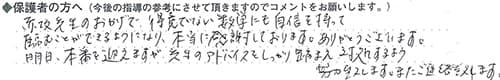 ◆保護者の方へ（今後の指導の参考にさせて頂きますのでコメントをお願いします。）
先生のおかげで、得意でない数学にも自信を持って
臨むことができるようになり、本当に感謝しております。ありがとうございます。
明日、本番を迎えますが先生のアドバイスをしっかり踏まえ対応するよう
努力します。またご連絡します。